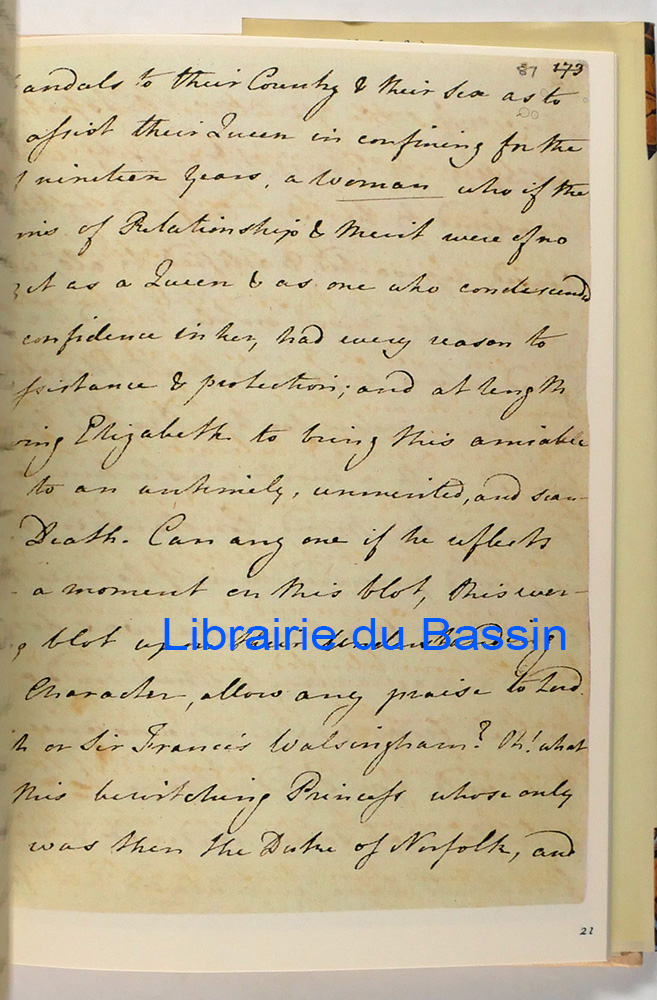 87 173
andals to their Country & their Sex as to
assist their Queen in confining for the
nineteen years, a Woman who if the
ms of Relationship & Merit were of no
as a Queen & as one who condescended
confidence in her, had every reason to
ssistance & protection; and at length
ing Elizabeth to bring this amiable
to an untimely, unmerited, and scan-
Death. Can any one if he reflects
- a moment on this blot, this ever-
g blot upon their Understanding &
Character, allow any praise to Lord
h or Sir Francis Walsingham? Oh! what
this bewitching Princess whose only
was then the Duke of Norfolk, and
Librairie du Bassin
21